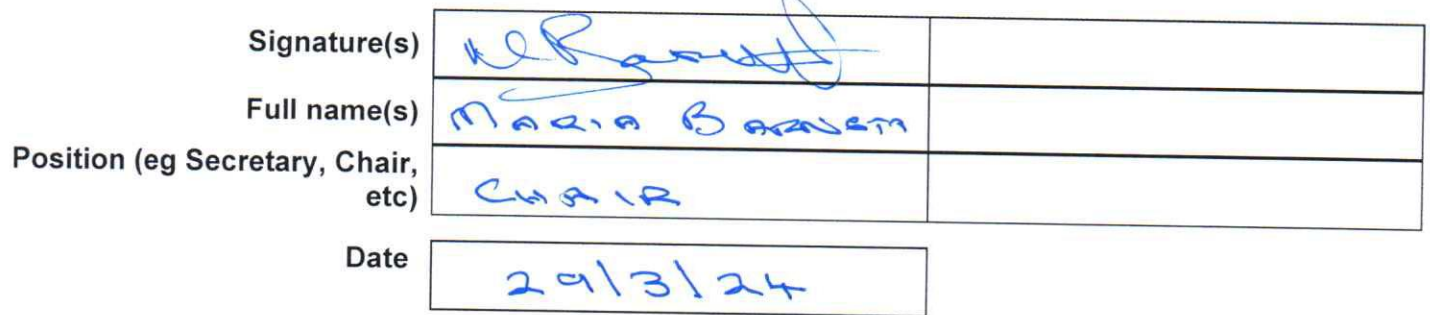 Signature(s)
Full name(s) MARIA BARNETT
Position (eg Secretary, Chair,
etc) CHAIR
Date 29/3/24